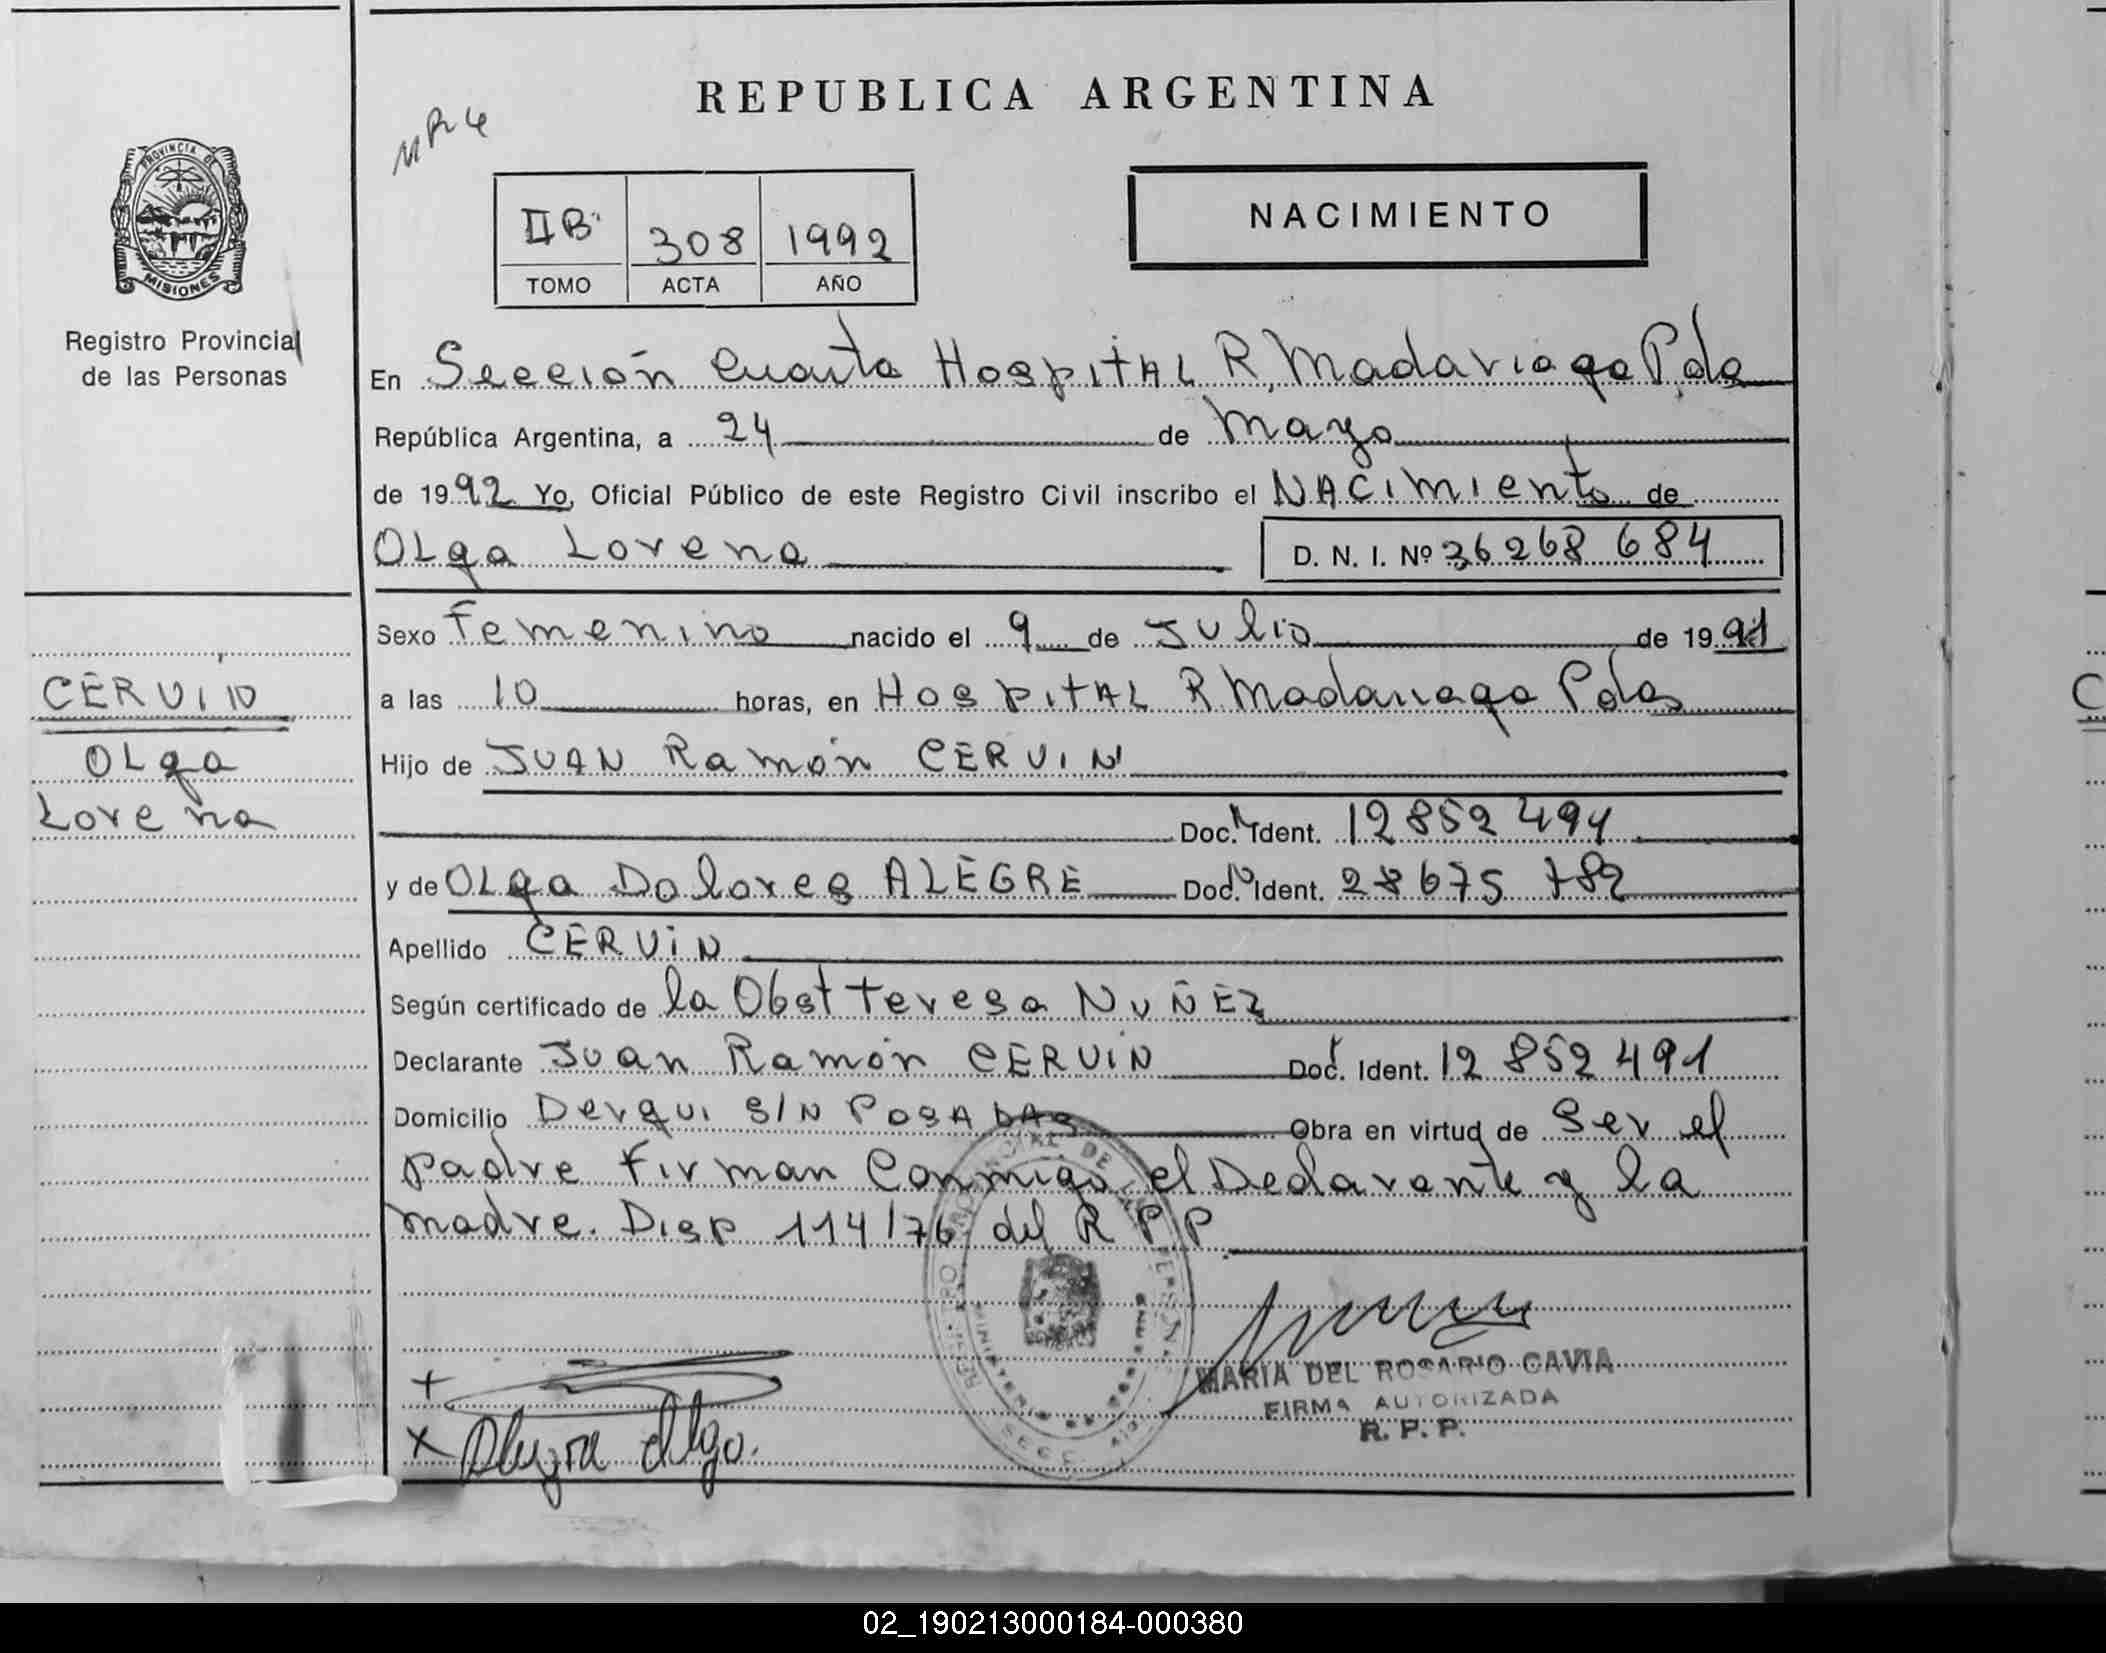 REPUBLICA ARGENTINA
PROVINCIA DE
MISIONES
Registro Provincial
de las Personas
IIB
308
1992
TOMO
ACTA
AÑO
NACIMIENTO
En Sección Cuarta Hospital R. Madariaga Pdas
República Argentina, a 24 de Mayo
de 1992 Yo, Oficial Público de este Registro Civil inscribo el NACIMIENTO de
OLga Lorena
D. N. I. Nº 36268 684
Sexo Femenino nacido el 9 de JULIO de 1991
a las 10 horas, en HospITAL R Madariaga Pdas
Hijo de JUAN Ramón CERVIN
Doc. Ident. 12852491
y de OLga Dolores ALEGRE Doc. Ident. 28675 782
Apellido CERVIN
Según certificado de la Obst Teresa NUÑEZ
Declarante Juan Ramón CERVIN Doc. Ident. 12 852 491
Domicilio Derqui S/N POSADAS Obra en virtud de Ser el
padre Firman Conmigo el Declarante y la
madre. Disp 114/76 del R P P
CERVIN
OLga
Lorena
MARIA DEL ROSARIO CAVIA
FIRMA AUTORIZADA
R. P. P.
02_190213000184-000380